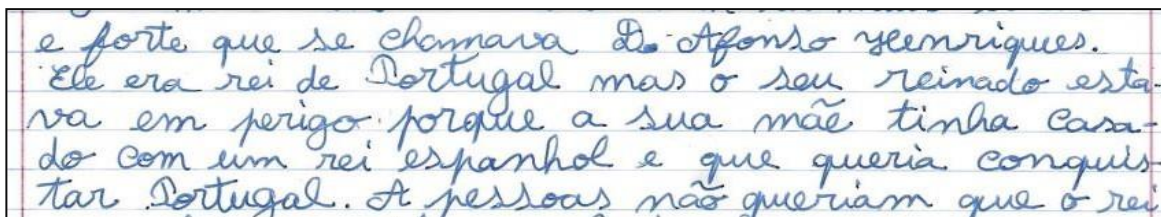 e forte que se chamava D. Afonso Henriques.
Ele era rei de Portugal mas o seu reinado esta-
va em perigo porque a sua mãe tinha casa-
do com um rei espanhol e que queria conquis-
tar Portugal. A pessoas não queriam que o rei